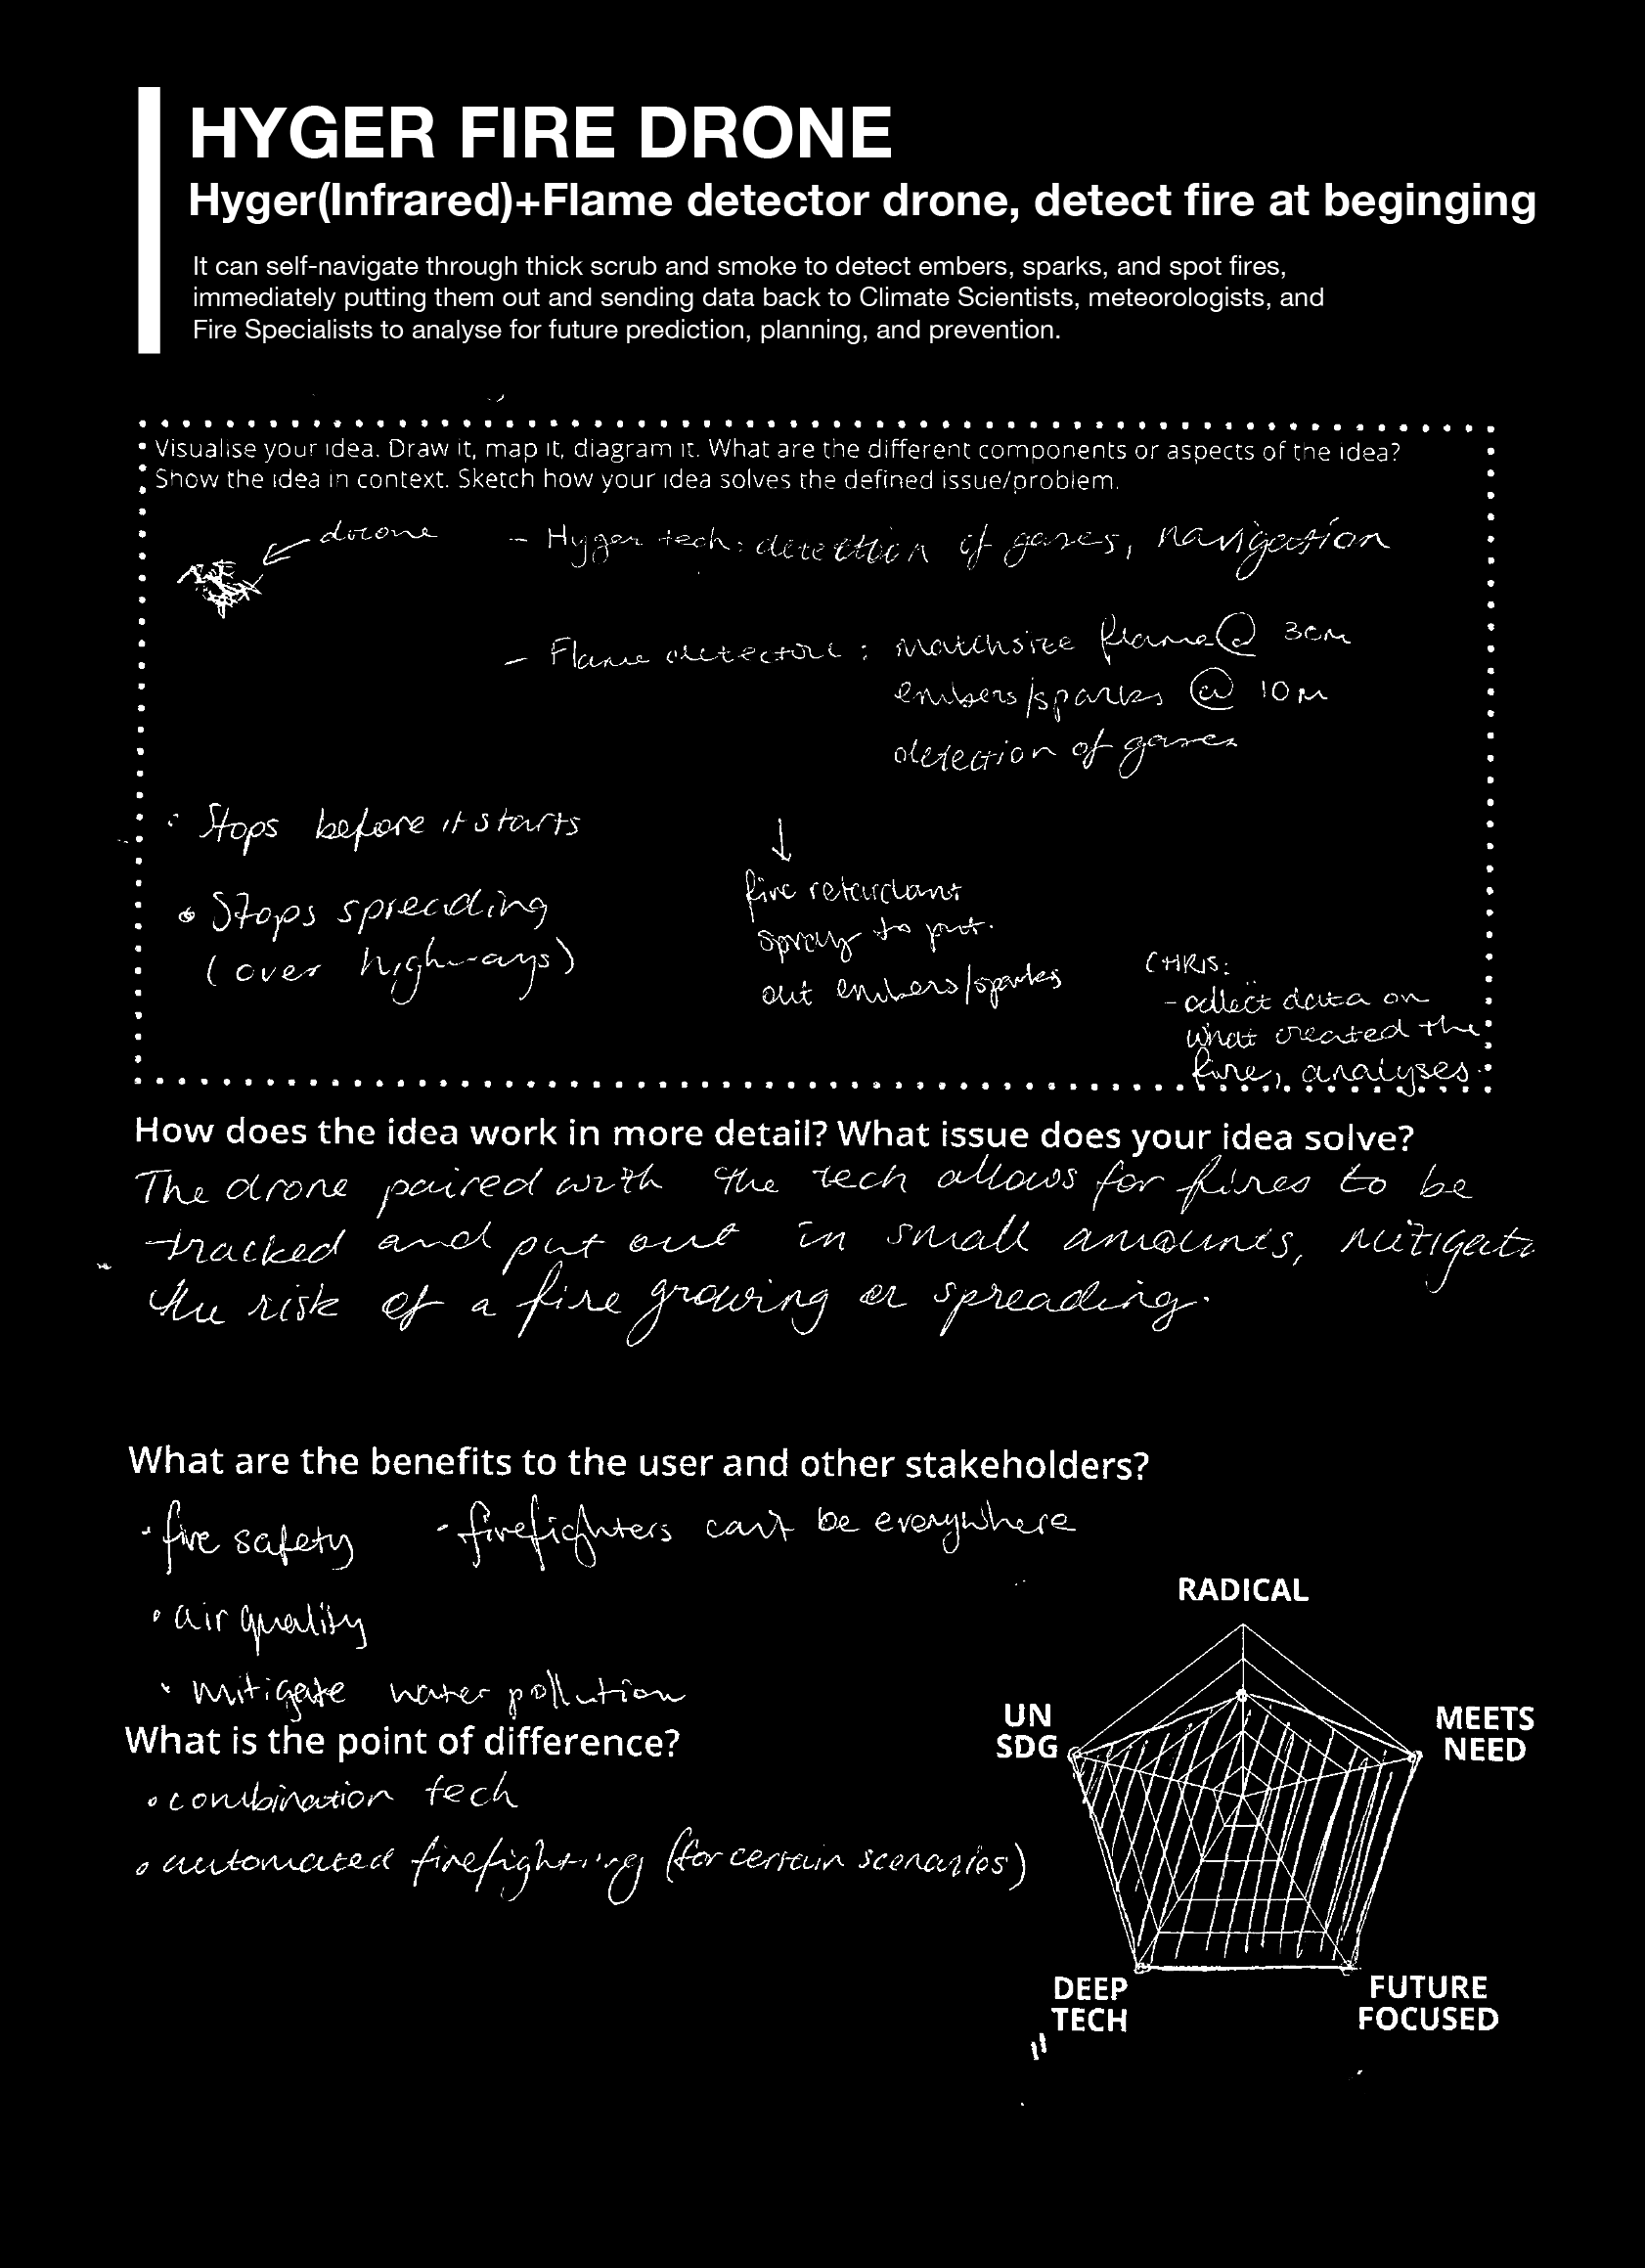 HYGER FIRE DRONE
Hyger(Infrared)+Flame detector drone, detect fire at beginging
It can self-navigate through thick scrub and smoke to detect embers, sparks, and spot fires,
immediately putting them out and sending data back to Climate Scientists, meteorologists, and
Fire Specialists to analyse for future prediction, planning, and prevention.
Visualise your idea. Draw it, map it, diagram it. What are the different components or aspects of the idea?
Show the idea in context. Sketch how your idea solves the defined issue/problem.
drone
- Hyger tech: detection of gases, navigation
- Flame detector : matchsize flame @ 3cm
embers/sparks @ 10m
detection of gases
• Stops before it starts
• Stops spreading
(over highways)
↓
fire retardant
spray to put
out embers/sparks
CHRIS:
- collect data on
what created the
fire, analyses
How does the idea work in more detail? What issue does your idea solve?
The drone paired with the tech allows for fires to be
tracked and put out in small amounts, mitigate
the risk of a fire growing or spreading.
What are the benefits to the user and other stakeholders?
• fire safety
• firefighters can't be everywhere
• air quality
• mitigate water pollution
What is the point of difference?
• combination tech
• automated firefighting (for certain scenarios)
RADICAL
UN
SDG
MEETS
NEED
DEEP
TECH
FUTURE
FOCUSED